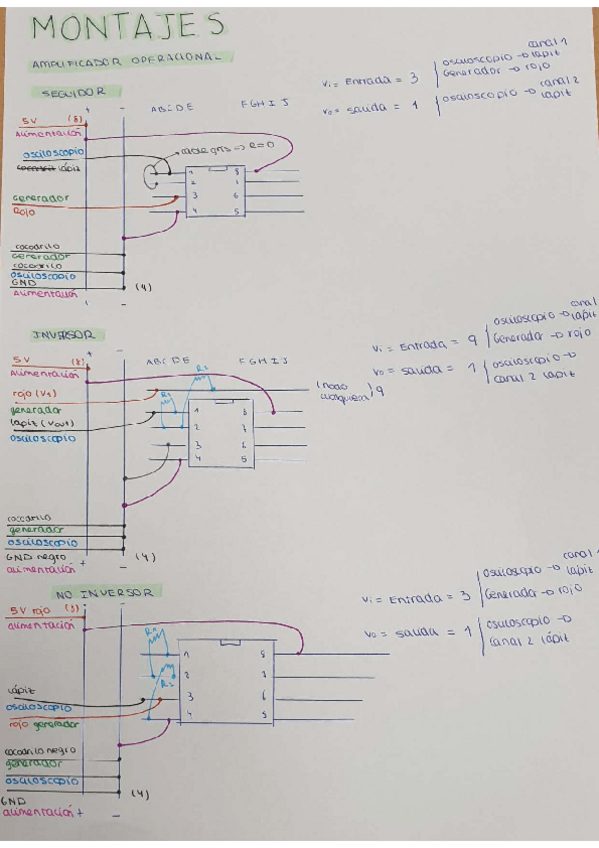 MONTAJES
AMPLIFICADOR OPERACIONAL
SEGUIDOR
Vi = Entrada = 3 osciloscopio → lápiz canal 1
Generador → rojo
Vo = salida = 1 osciloscopio → lápiz canal 2
+ -
ABCDE FGHIJ
5V (8)
Alimentación
osciloscopio
lápiz
cable gris → R=0
1 8
2 7
3 6
4 5
Generador
Rojo
cocodrilo
Generador
cocodrilo
osciloscopio
GND (4)
Alimentación
+ -
INVERSOR
Vi = Entrada = 9 osciloscopio → lápiz canal 1
Generador → rojo
Vo = salida = 1 osciloscopio → canal 2 lápiz
+ -
ABCDE FGHIJ
5V (8)
Alimentación
rojo (Vs)
generador
lápiz (Vout)
osciloscopio
R1 R2
(nodo cualquiera) 9
1 8
2 7
3 6
4 5
cocodrilo
generador
osciloscopio
GND negro (4)
alimentación + -
NO INVERSOR
Vi = Entrada = 3 osciloscopio → lápiz canal 1
Generador → rojo
Vo = salida = 1 osciloscopio → canal 2 lápiz
5V rojo -
alimentación
R2
1 8
2 7
3 6
4 5
lápiz
osciloscopio
rojo generador
cocodrilo negro
generador
osciloscopio
GND (4)
alimentación + -